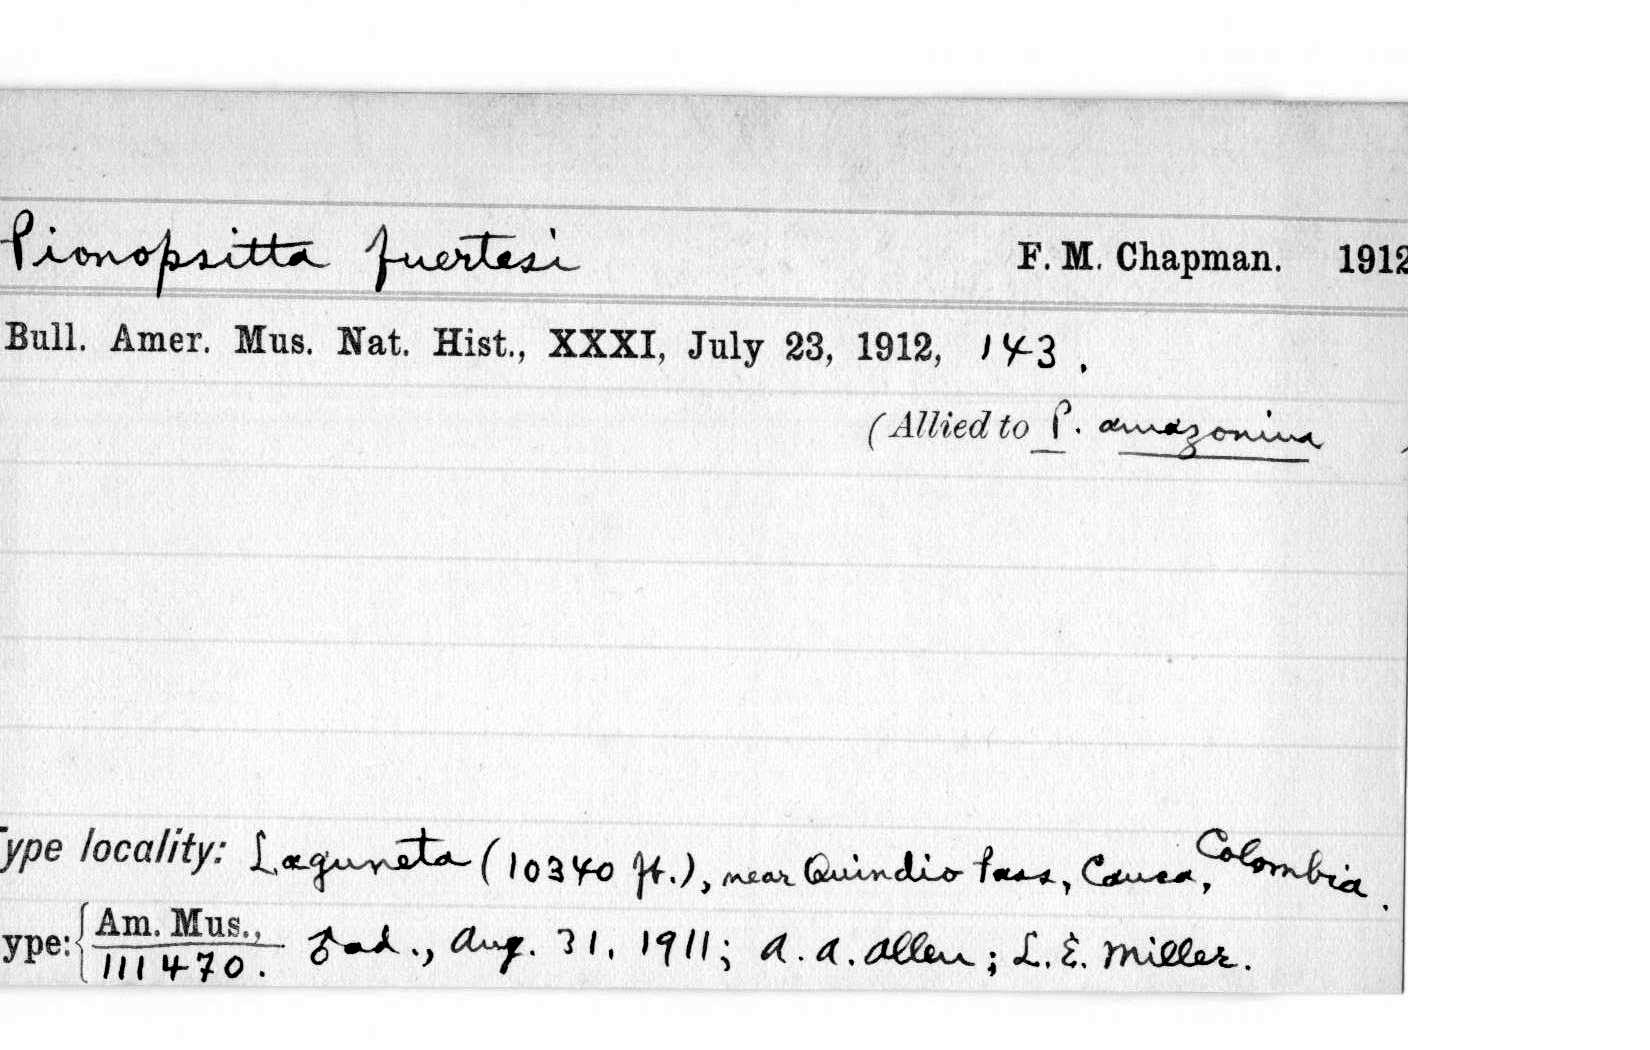 Pionopsitta fuertesi F. M. Chapman. 1912
Bull. Amer. Mus. Nat. Hist., XXXI, July 23, 1912, 143.
(Allied to P. amazonina )
Type locality: Laguneta (10340 ft.), near Quindio Pass, Cauca, Colombia.
ype: { Am. Mus., 111470. ♂ ad., Aug. 31, 1911; A. A. Allen; L. E. Miller.